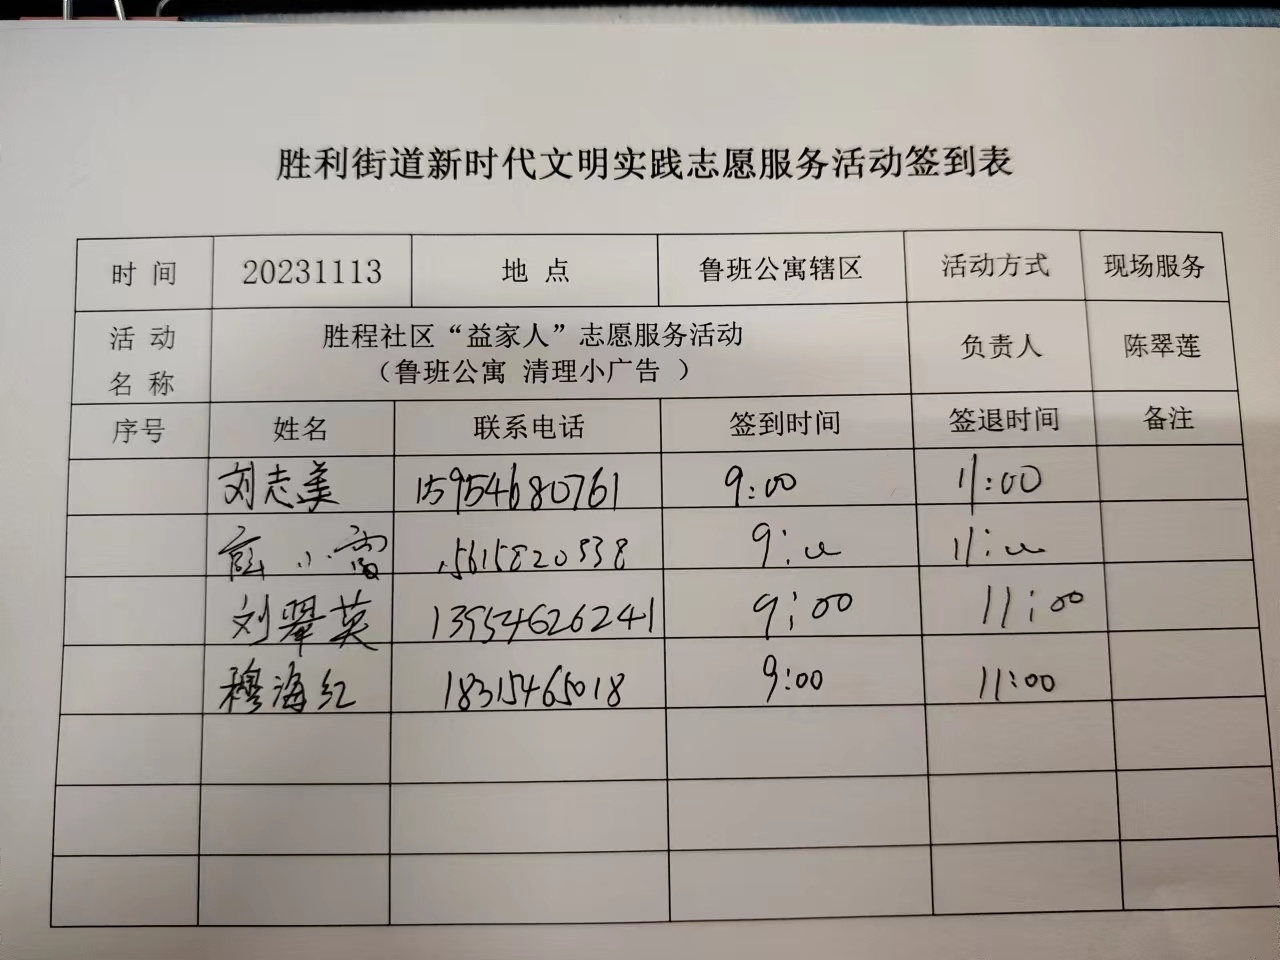 胜利街道新时代文明实践志愿服务活动签到表
时 间 20231113 地 点 鲁班公寓辖区 活动方式 现场服务
活 动 名 称 胜程社区“益家人”志愿服务活动 （鲁班公寓 清理小广告 ） 负责人 陈翠莲
序号 姓名 联系电话 签到时间 签退时间 备注
刘志美 15954680761 9:00 11:00
小雷 9:00 11:00
刘翠英 13954626241 9:00 11:00
穆海红 18315465018 9:00 11:00